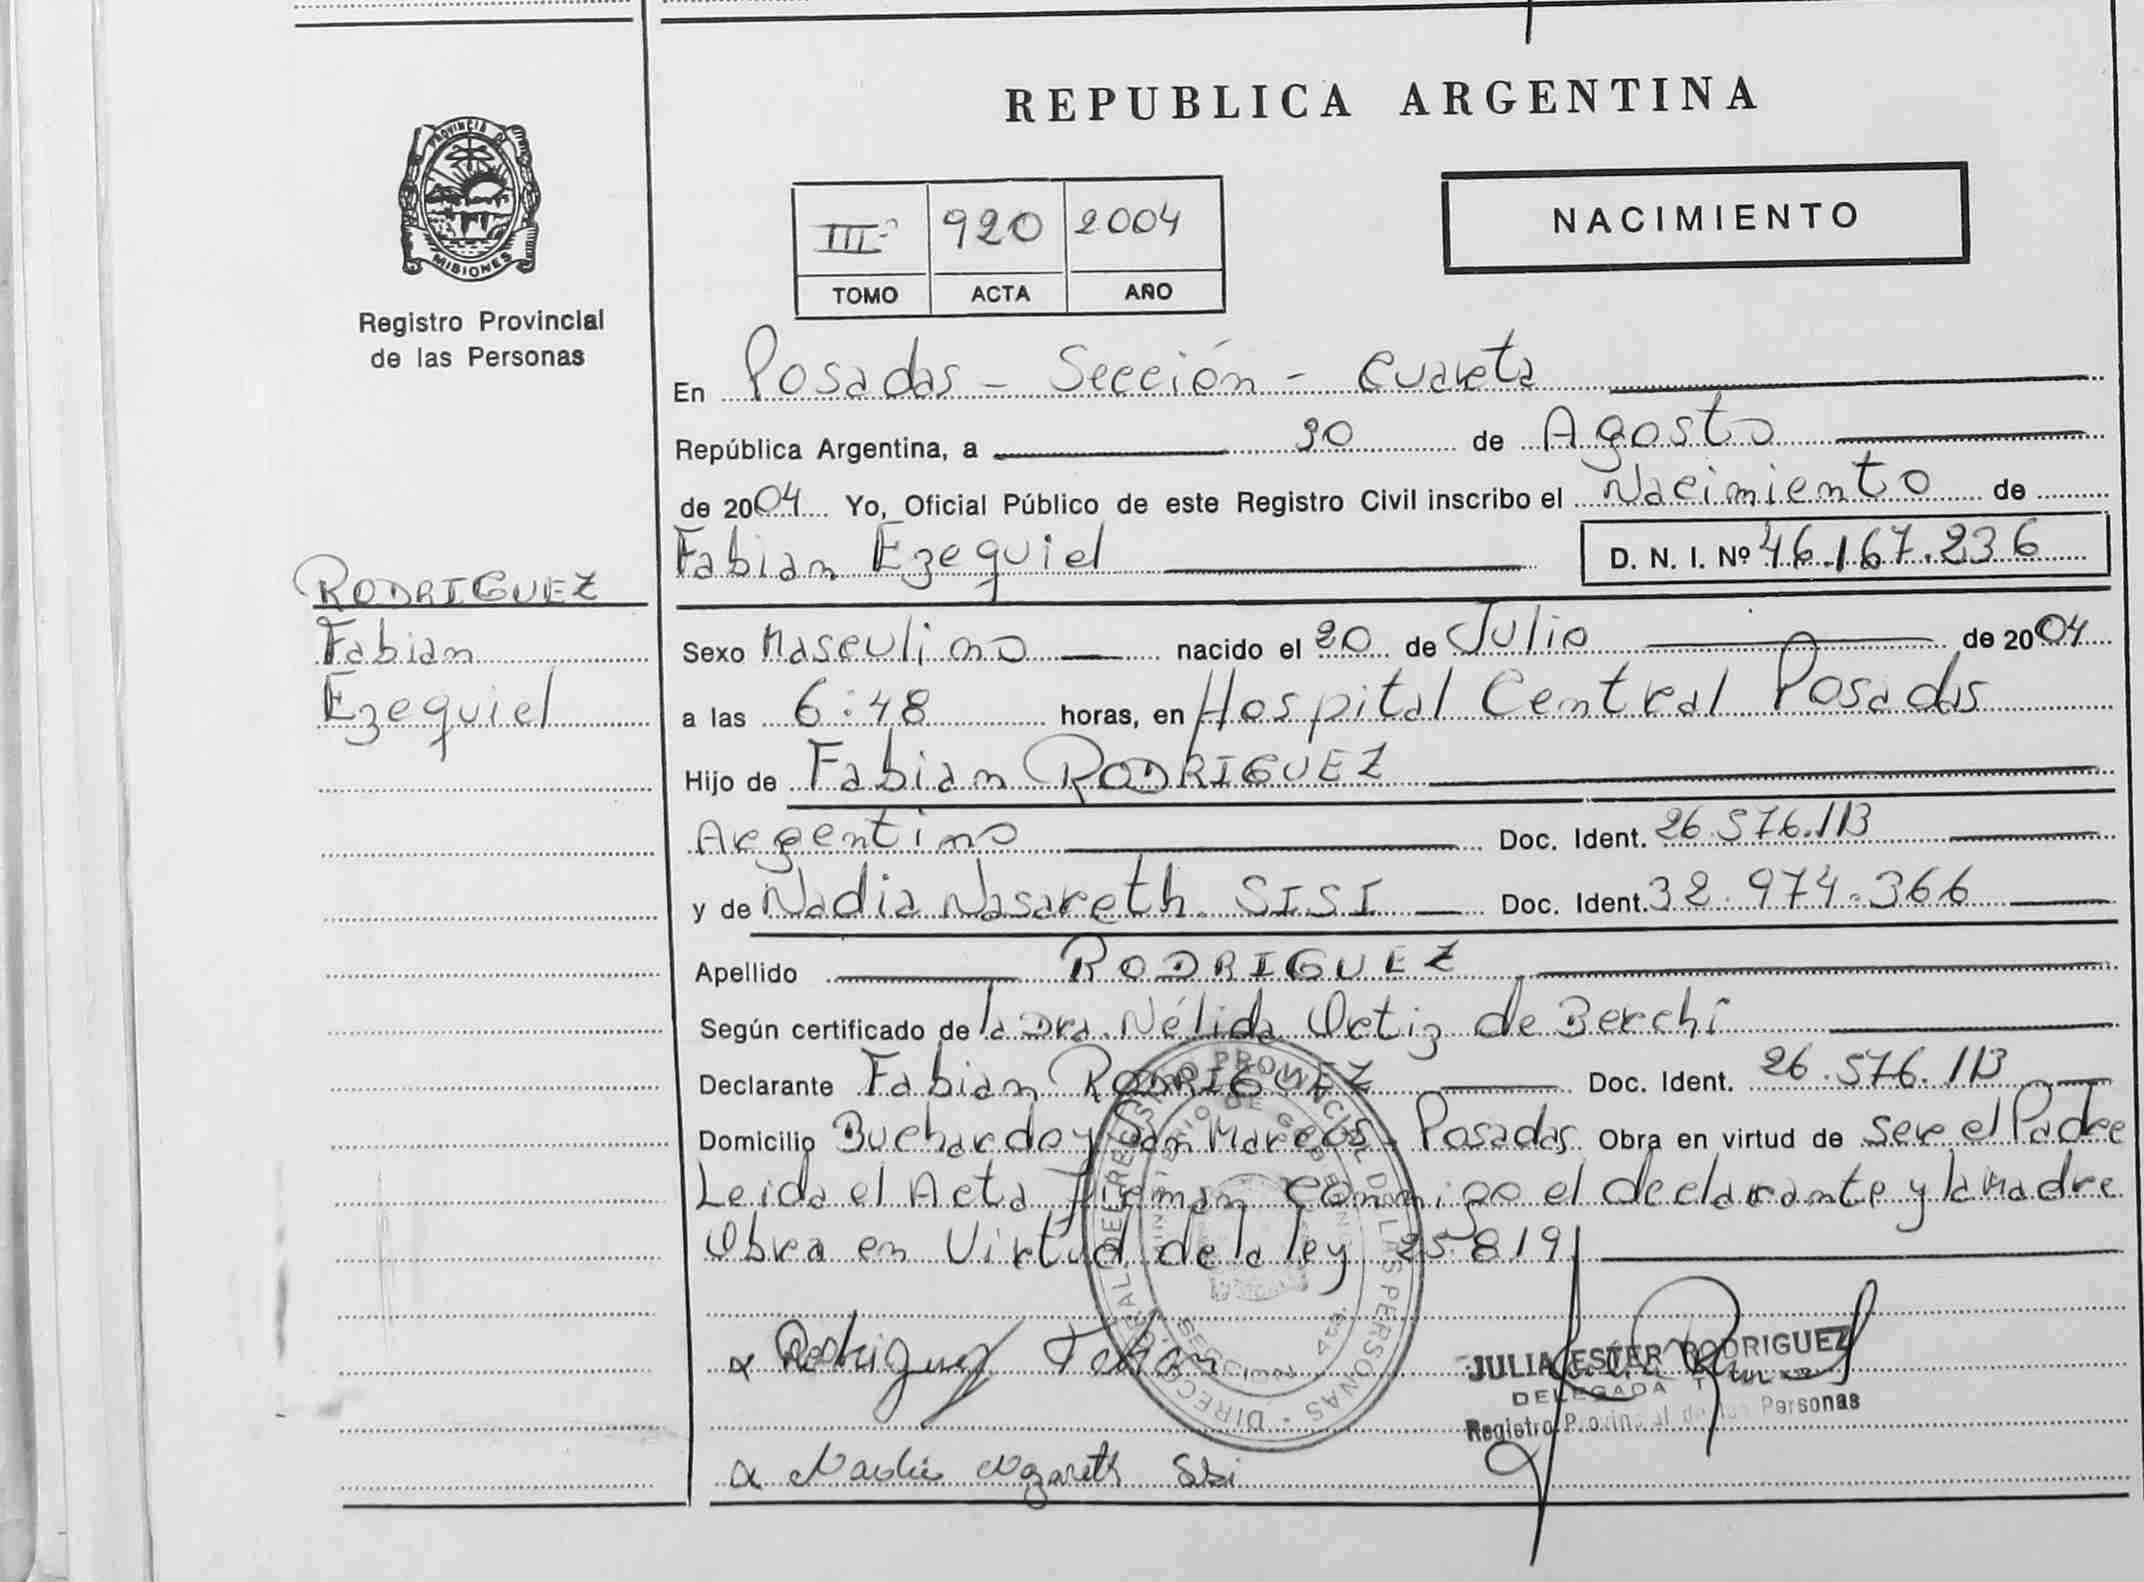 REPUBLICA ARGENTINA
PROVINCIA DE
MISIONES
Registro Provincial
de las Personas
III 920 2004
TOMO ACTA AÑO
NACIMIENTO
En Posadas - Sección - Cuarta
República Argentina, a 30 de Agosto
de 2004 Yo, Oficial Público de este Registro Civil inscribo el Nacimiento de
Fabian Ezequiel D. N. I. Nº 46.167.236
RODRIGUEZ
Fabian
Ezequiel
Sexo Masculino nacido el 20 de Julio de 2004
a las 6:48 horas, en Hospital Central Posadas
Hijo de Fabian RODRIGUEZ
Argentino Doc. Ident. 26.576.113
y de Nadia Nasareth SISI Doc. Ident. 32.974.366
Apellido RODRIGUEZ
Según certificado de la Dra. Nélida Ortiz de Berchi
Declarante Fabian RODRIGUEZ Doc. Ident. 26.576.113
Domicilio Buchardo y San Marcos - Posadas Obra en virtud de ser el Padre
Leida el Acta firman conmigo el declarante y la Madre
Obra en Virtud de la ley 25.819
DIRECCION GENERAL DEL REGISTRO PROVINCIAL DE LAS PERSONAS
MINISTERIO DE GOBIERNO
SECCION 4ta.
Rodriguez Fabian
JULIA ESTER RODRIGUEZ
DELEGADA TITULAR
Registro Provincial de las Personas
Nadia Nazareth Sisi